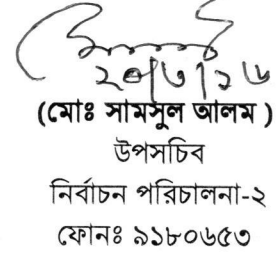 ২০/৩/১৬
(মোঃ সামসুল আলম )
উপসচিব
নির্বাচন পরিচালনা-২
ফোনঃ ৯১৮০৬৫৩